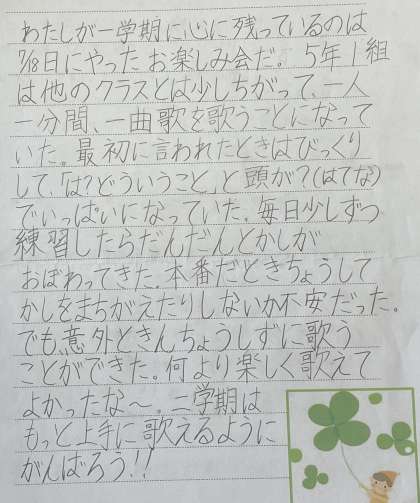 わたしが一学期に心に残っているのは
7/18日にやったお楽しみ会だ。5年1組
は他のクラスとは少しちがって、一人
一分間、一曲歌を歌うことになって
いた。最初に言われたときはびっくり
して、「は?どういうこと」と頭が?(はてな)
でいっぱいになっていた。毎日少しずつ
練習したらだんだんとかしが
おぼわってきた。本番だときちょうして
かしをまちがえたりしないか不安だった。
でも意外ときんちょうしずに歌う
ことができた。何より楽しく歌えて
よかったな〜。二学期は
もっと上手に歌えるように
がんばろう!!